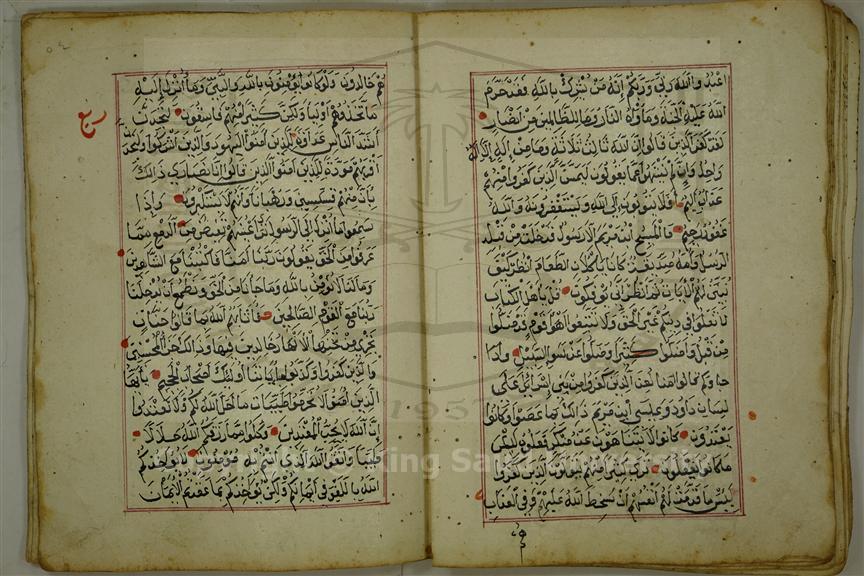 اعبدوا الله ربي وربكم انه من يشرك بالله فقد حرم
الله عليه الجنة ومأواه النار وما للظالمين من انصار
لقد كفر الذين قالوا ان الله ثالث ثلاثة وما من اله الا اله
واحد وان لم ينتهوا عما يقولون ليمسن الذين كفروا منهم
عذاب اليم افلا يتوبون الى الله ويستغفرونه والله
غفور رحيم ما المسيح ابن مريم الا رسول قد خلت من قبله
الرسل وامه صديقة كانا ياكلان الطعام انظر كيف
نبين لهم الايات ثم انظر انى يوفكون قل يا اهل الكتاب
لا تغلوا في دينكم غير الحق ولا تتبعوا اهواء قوم قد ضلوا
من قبل واضلوا كثيرا وضلوا عن سواء السبيل
لسان داود وعيسى ابن مريم ذلك بما عصوا وكانوا
يعتدون كانوا لا يتناهون عن منكر فعلوه لبئس
ما كانوا يفعلون ترى كثيرا منهم يتولون الذين كفروا
لبئس ما قدمت لهم انفسهم ان سخط الله عليهم وفي العذاب
هم خالدون ولو كانوا يومنون بالله والنبي وما انزل اليه
ما اتخذوهم اولياء ولكن كثيرا منهم فاسقون لتجدن
ربع
اشد الناس عداوة للذين امنوا اليهود والذين اشركوا ولتجدن
اقربهم مودة للذين امنوا الذين قالوا انا نصارى ذلك
بان منهم قسيسين ورهبانا وانهم لا يستكبرون واذا
سمعوا ما انزل الى الرسول ترى اعينهم تفيض من الدمع مما
عرفوا من الحق يقولون ربنا امنا فاكتبنا مع الشاهدين
وما لنا لا نومن بالله وما جاءنا من الحق ونطمع ان يدخلنا
ربنا مع القوم الصالحين فاثابهم الله بما قالوا جنات
تجري من تحتها الانهار خالدين فيها وذلك جزاء المحسنين
والذين كفروا وكذبوا باياتنا اولئك اصحاب الجحيم يا ايها
الذين امنوا لا تحرموا طيبات ما احل الله لكم ولا تعتدوا
ان الله لا يحب المعتدين وكلوا مما رزقكم الله حلالا
طيبا واتقوا الله الذي انتم به مومنون لا يواخذكم
الله باللغو في ايمانكم ولكن يواخذكم بما عقدتم الايمان
King Saud University
1957